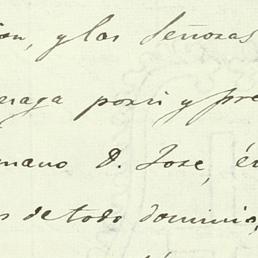 ion, y las Señoras
eraga por si y pre
mano D. Jose, én
s de todo dominio,